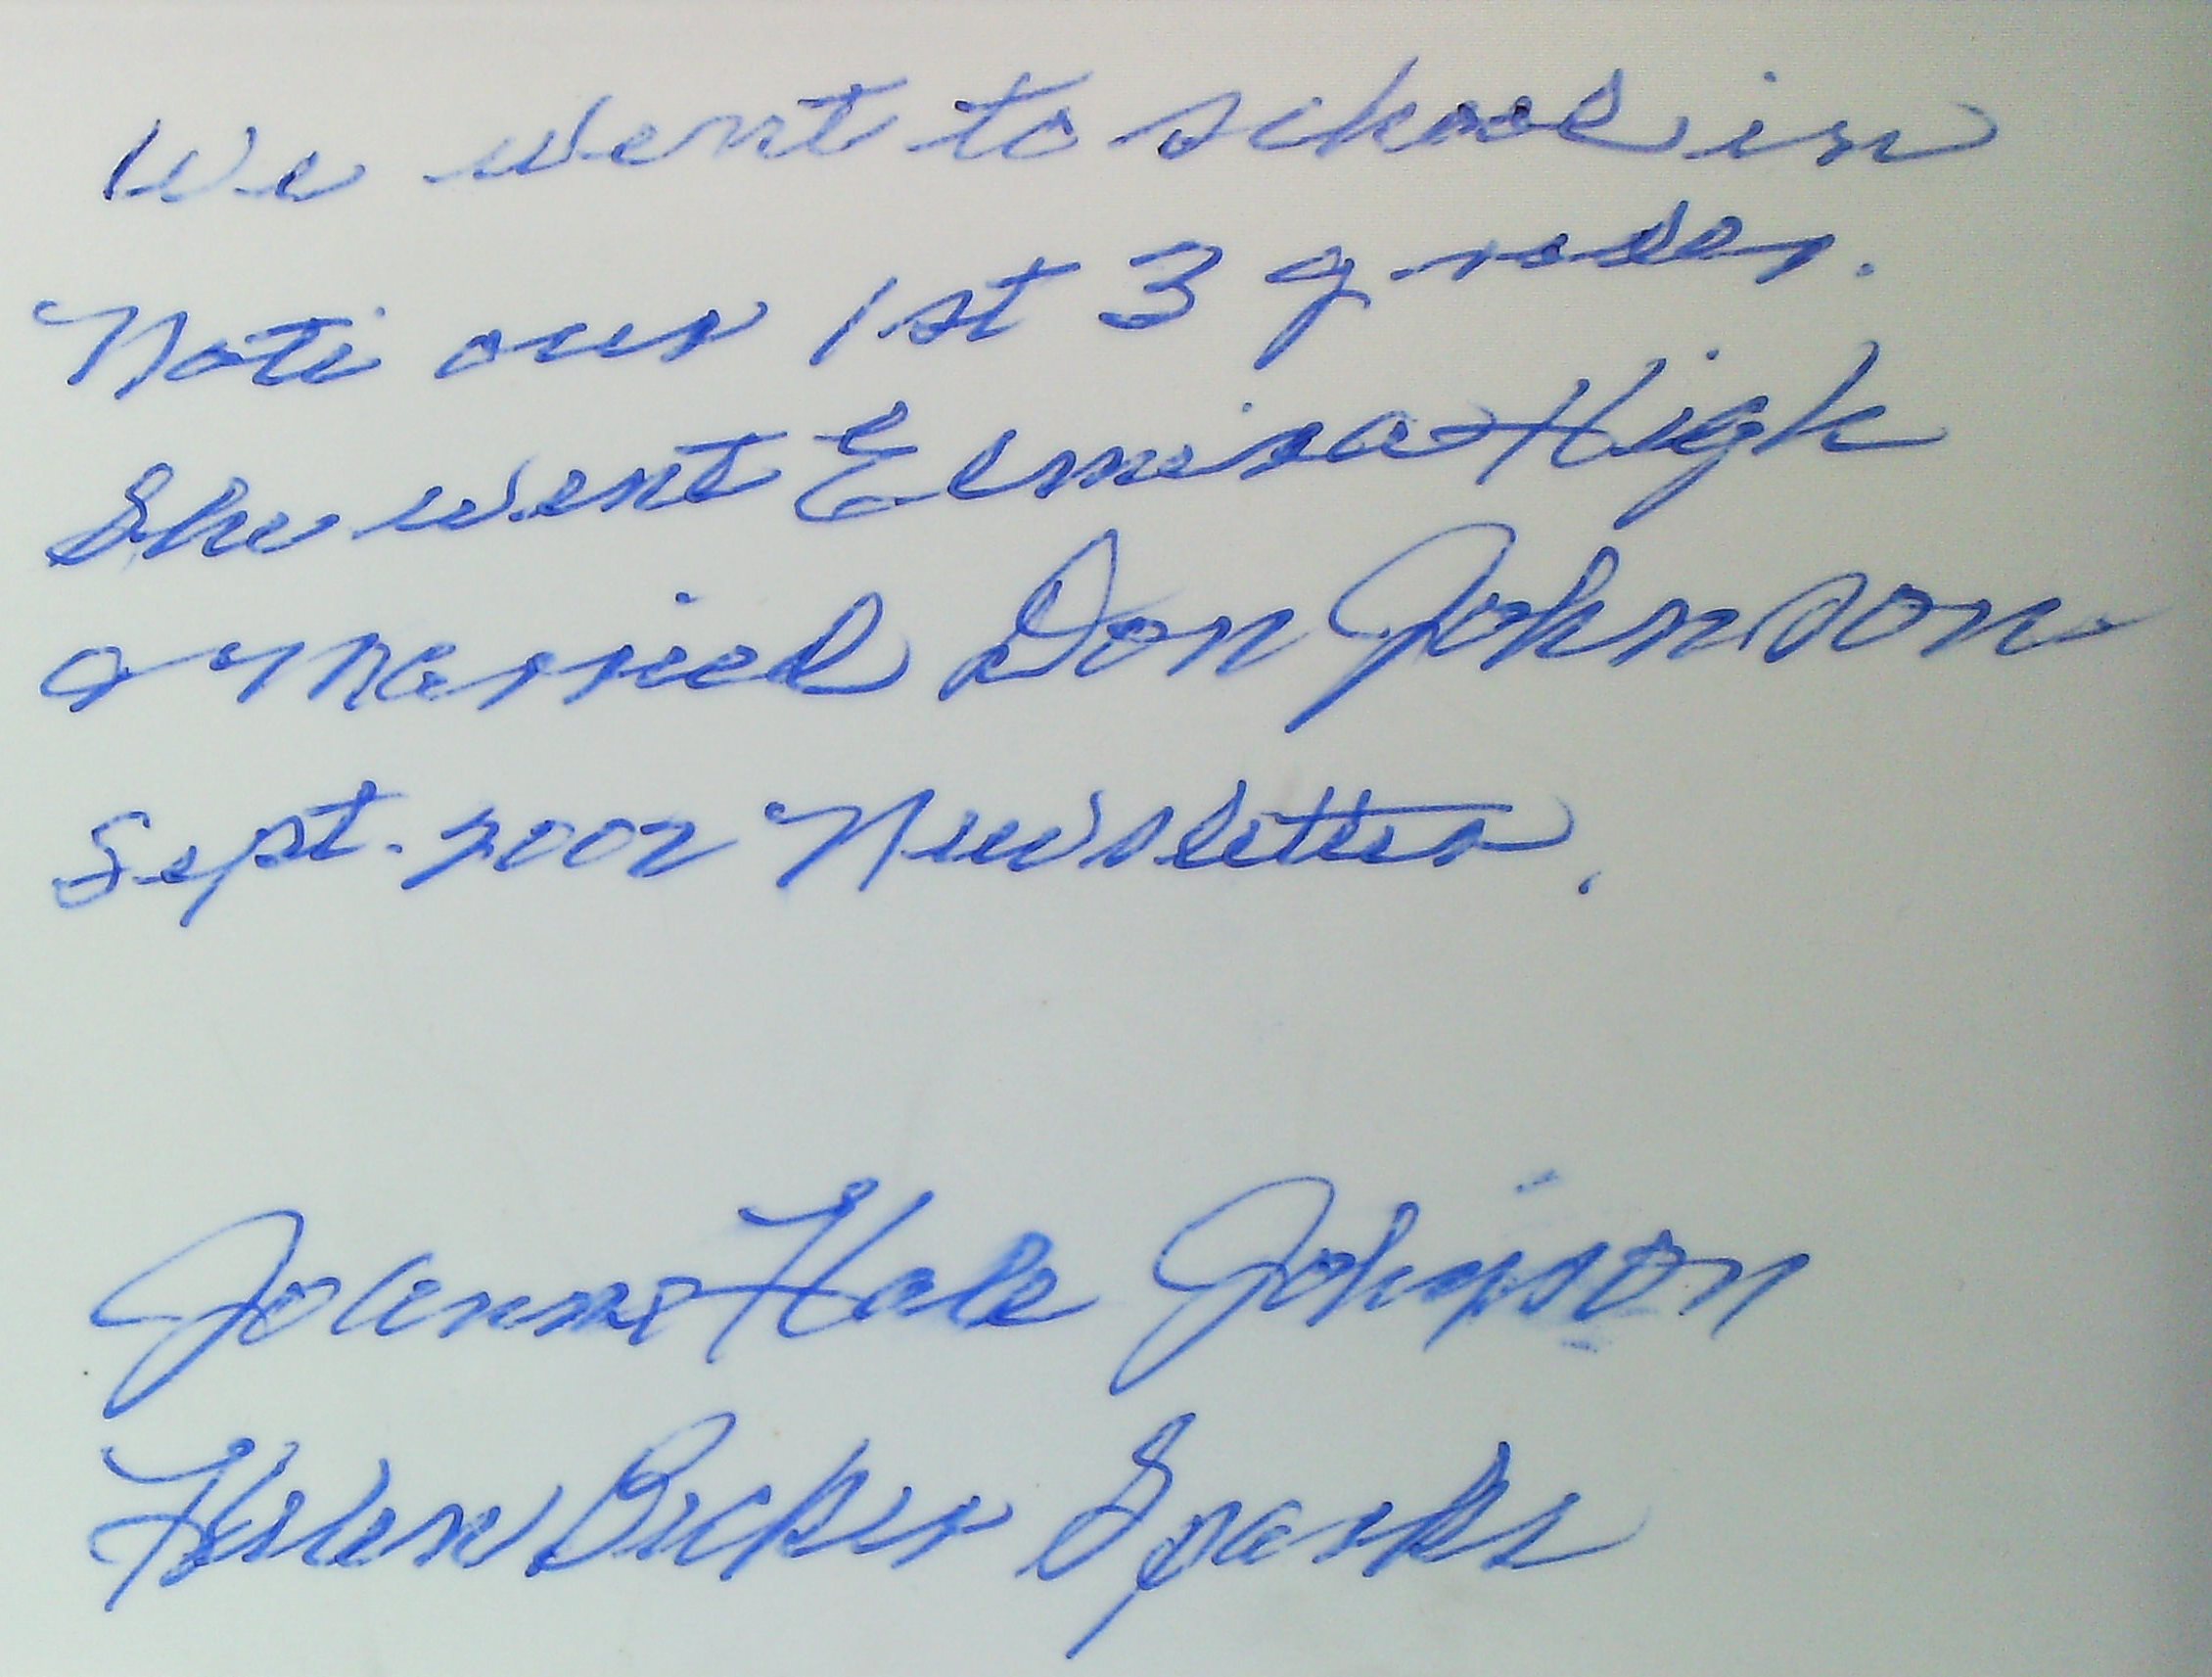 We went to school in
Noti our 1st 3 grades.
She went Elmira High
& Married Don Johnson
Sept. 2002 Newsletter.
Joanne Hale Johnson
Helen Bicker Sparks